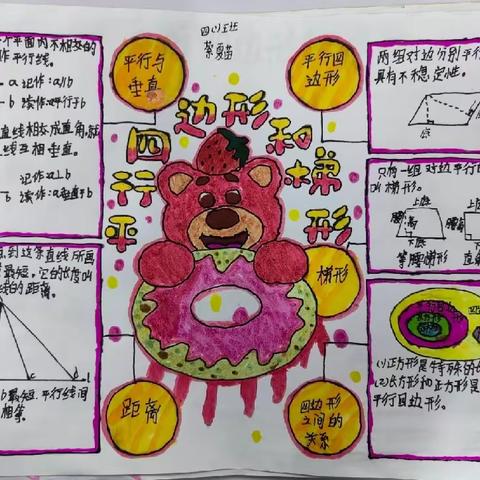 四(1)班
平行四边形和梯形
平行与
垂直
平行四
边形
梯形
距离
四边形
之间的
关系
个平面内不相交的
作平行线。
a 记作:a∥b
b 读作:a平行于b
直线相交成直角,就
线互相垂直。
记作:a⊥b
b 读作:a垂直于b
点到这条直线所画
最短,它的长度叫
线的距离。
b最短.平行线间
相等.
两组对边分别平行
具有不稳定性。
底
只有一组对边平行的
叫梯形。
上底
腰
高
下底
等腰梯形
上底
直角
(1)正方形是特殊的长
(2)长方形和正方形是
平行四边形。